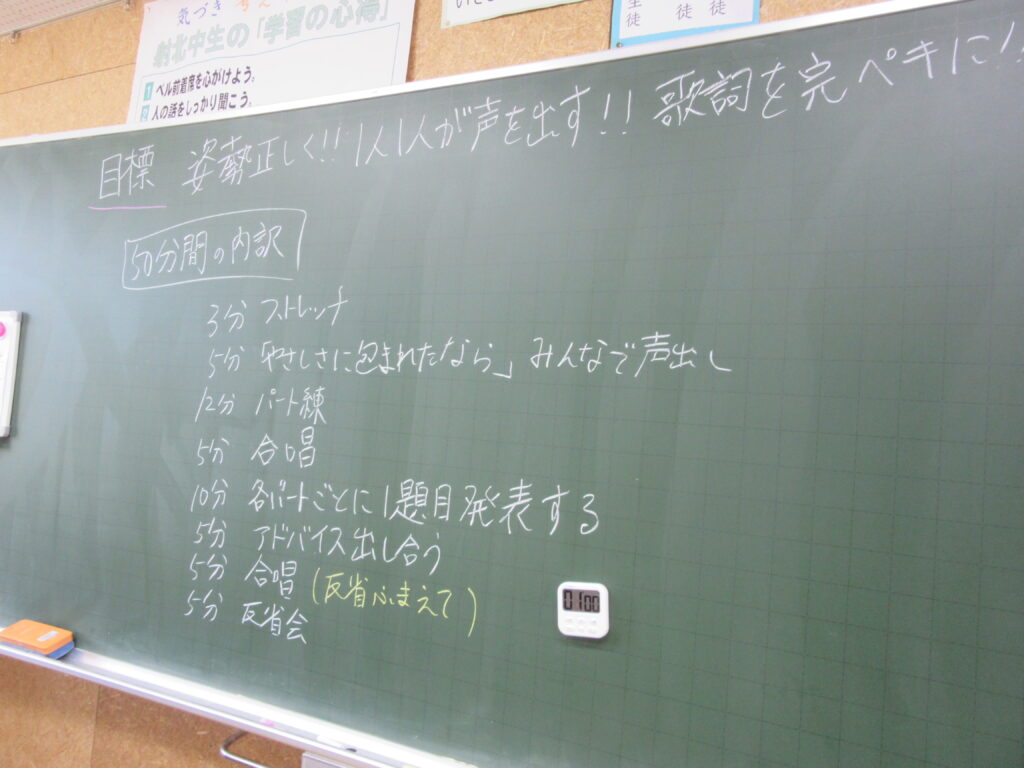 気づき
射北中生の「学習の心得」
1 ベル前着席を心がけよう。
2 人の話をしっかり聞こう。
生徒 徒 徒
目標 姿勢正しく!! 1人1人が声を出す!! 歌詞を完ペキに!!
50分間の内訳
3分 ストレッチ
5分 「やさしさに包まれたなら」みんなで声出し
12分 パート練
5分 合唱
10分 各パートごとに1題目発表する
5分 アドバイス出し合う
5分 合唱 (反省ふまえて)
5分 反省会
0100